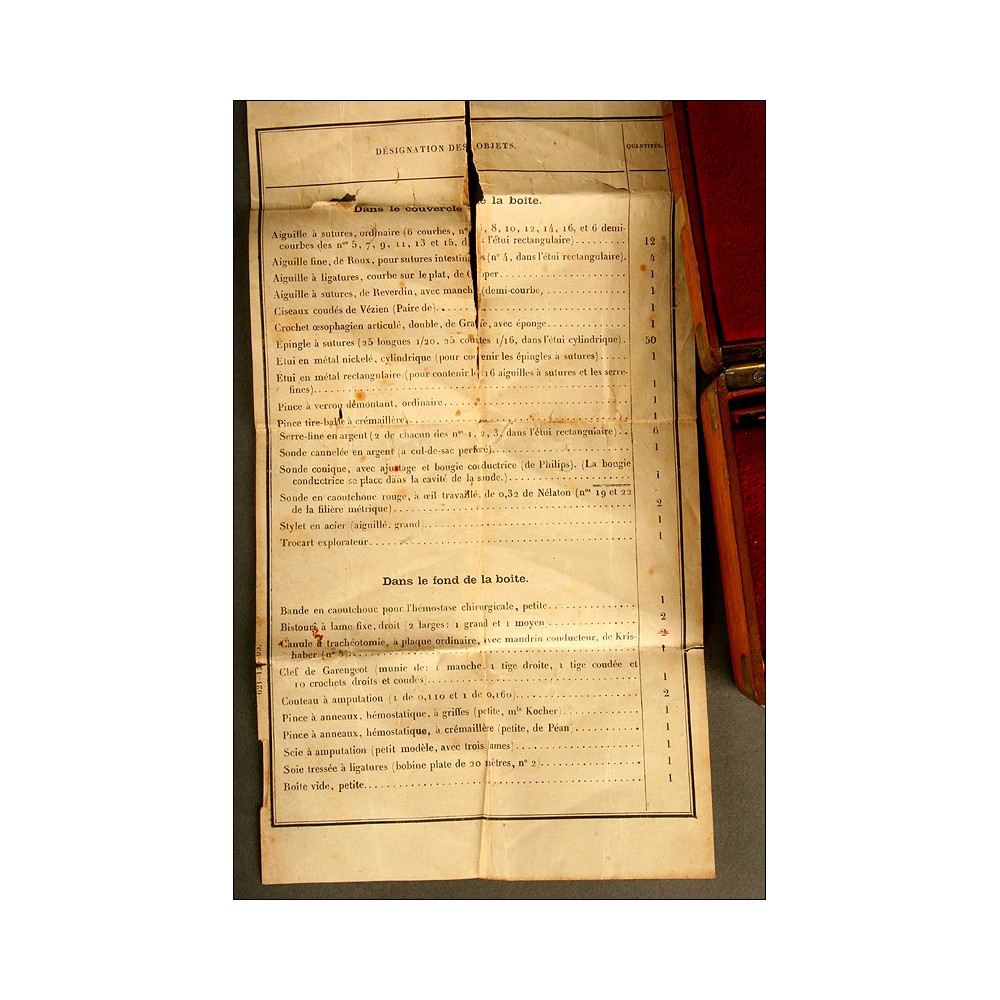 DÉSIGNATION DES OBJETS. QUANTITÉS.
Dans le couvercle de la boîte.
Aiguille à sutures, ordinaire (6 courbes, nos 8, 10, 12, 14, 16, et 6 demi-
courbes des nos 5, 7, 9, 11, 13 et 15, l'étui rectangulaire)......... 12
Aiguille fine, de Roux, pour sutures intestinales (n° 4, dans l'étui rectangulaire). 4
Aiguille à ligatures, courbe sur le plat, de Cooper........ 1
Aiguille à sutures, de Reverdin, avec manche (demi-courbe, ........ 1
Ciseaux coudés de Vézien (Paire de)........ 1
Crochet œsophagien articulé, double, de Graefe, avec éponge........ 1
Épingle à sutures (25 longues 1/20, 25 courtes 1/16, dans l'étui cylindrique). 50
Étui en métal nickelé, cylindrique (pour contenir les épingles à sutures)..... 1
Étui en métal rectangulaire (pour contenir les 16 aiguilles à sutures et les serre-
fines)........ 1
Pince à verrou démontant, ordinaire........ 1
Pince tire-balle à crémaillère)........ 1
Serre-fine en argent (2 de chacun des nos 1, 2, 3, dans l'étui rectangulaire).. 6
Sonde cannelée en argent (à cul-de-sac perforé)........ 1
Sonde conique, avec ajustage et bougie conductrice (de Philips). (La bougie
conductrice se place dans la cavité de la sonde.)........ 1
Sonde en caoutchouc rouge, à œil travaillé, de 0,32 de Nélaton (nos 19 et 22
de la filière métrique)........ 2
Stylet en acier (aiguillé, grand)........ 1
Trocart explorateur........ 1
Dans le fond de la boîte.
Bande en caoutchouc pour l'hémostase chirurgicale, petite........ 1
Bistouri à lame fixe, droit (2 larges: 1 grand et 1 moyen)........ 2
Canule à trachéotomie, à plaque ordinaire, avec mandrin conducteur, de Kris-
haber (n° 3)........ 1
Clef de Garengeot (munie de: 1 manche, 1 tige droite, 1 tige coudée et
10 crochets droits et coudés)........ 1
Couteau à amputation (1 de 0,110 et 1 de 0,160)........ 2
Pince à anneaux, hémostatique, à griffes (petite, mle Kocher)........ 1
Pince à anneaux, hémostatique, à crémaillère (petite, de Péan)........ 1
Scie à amputation (petit modèle, avec trois lames)........ 1
Soie tressée à ligatures (bobine plate de 20 mètres, n° 2)........ 1
Boîte vide, petite........ 1